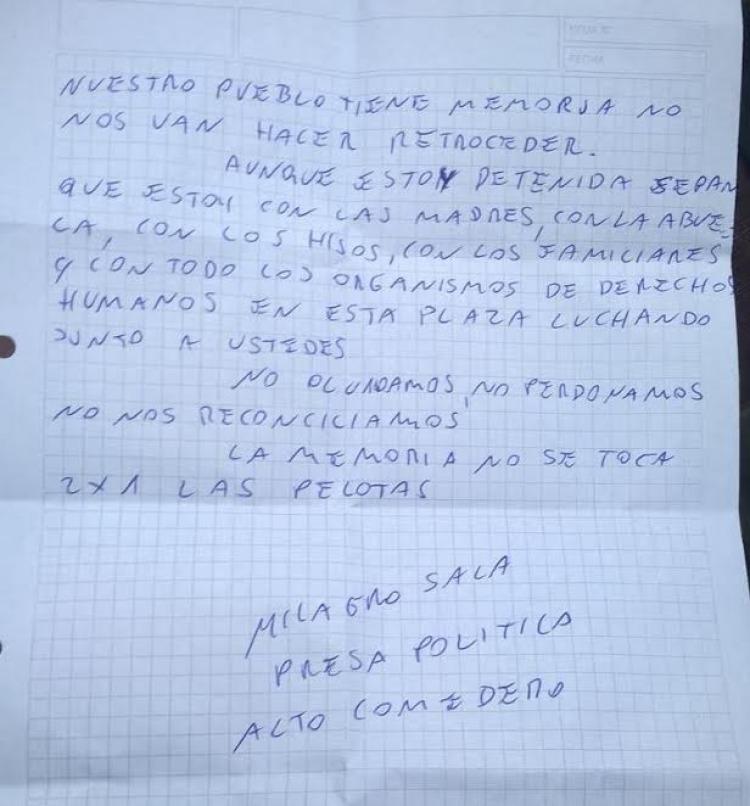 NUESTRO PUEBLO TIENE MEMORIA NO
NOS VAN HACER RETROCEDER.
AUNQUE ESTOY DETENIDA SEPAN
QUE ESTOY CON LAS MADRES, CON LA ABUE-
LA, CON LOS HIJOS, CON LOS FAMILIARES
Y CON TODO LOS ORGANISMOS DE DERECHOS
HUMANOS EN ESTA PLAZA LUCHANDO
JUNTO A USTEDES
NO OLVIDAMOS, NO PERDONAMOS
NO NOS RECONCILIAMOS
LA MEMORIA NO SE TOCA
2X1 LAS PELOTAS
MILAGRO SALA
PRESA POLITICA
ALTO COMEDERO